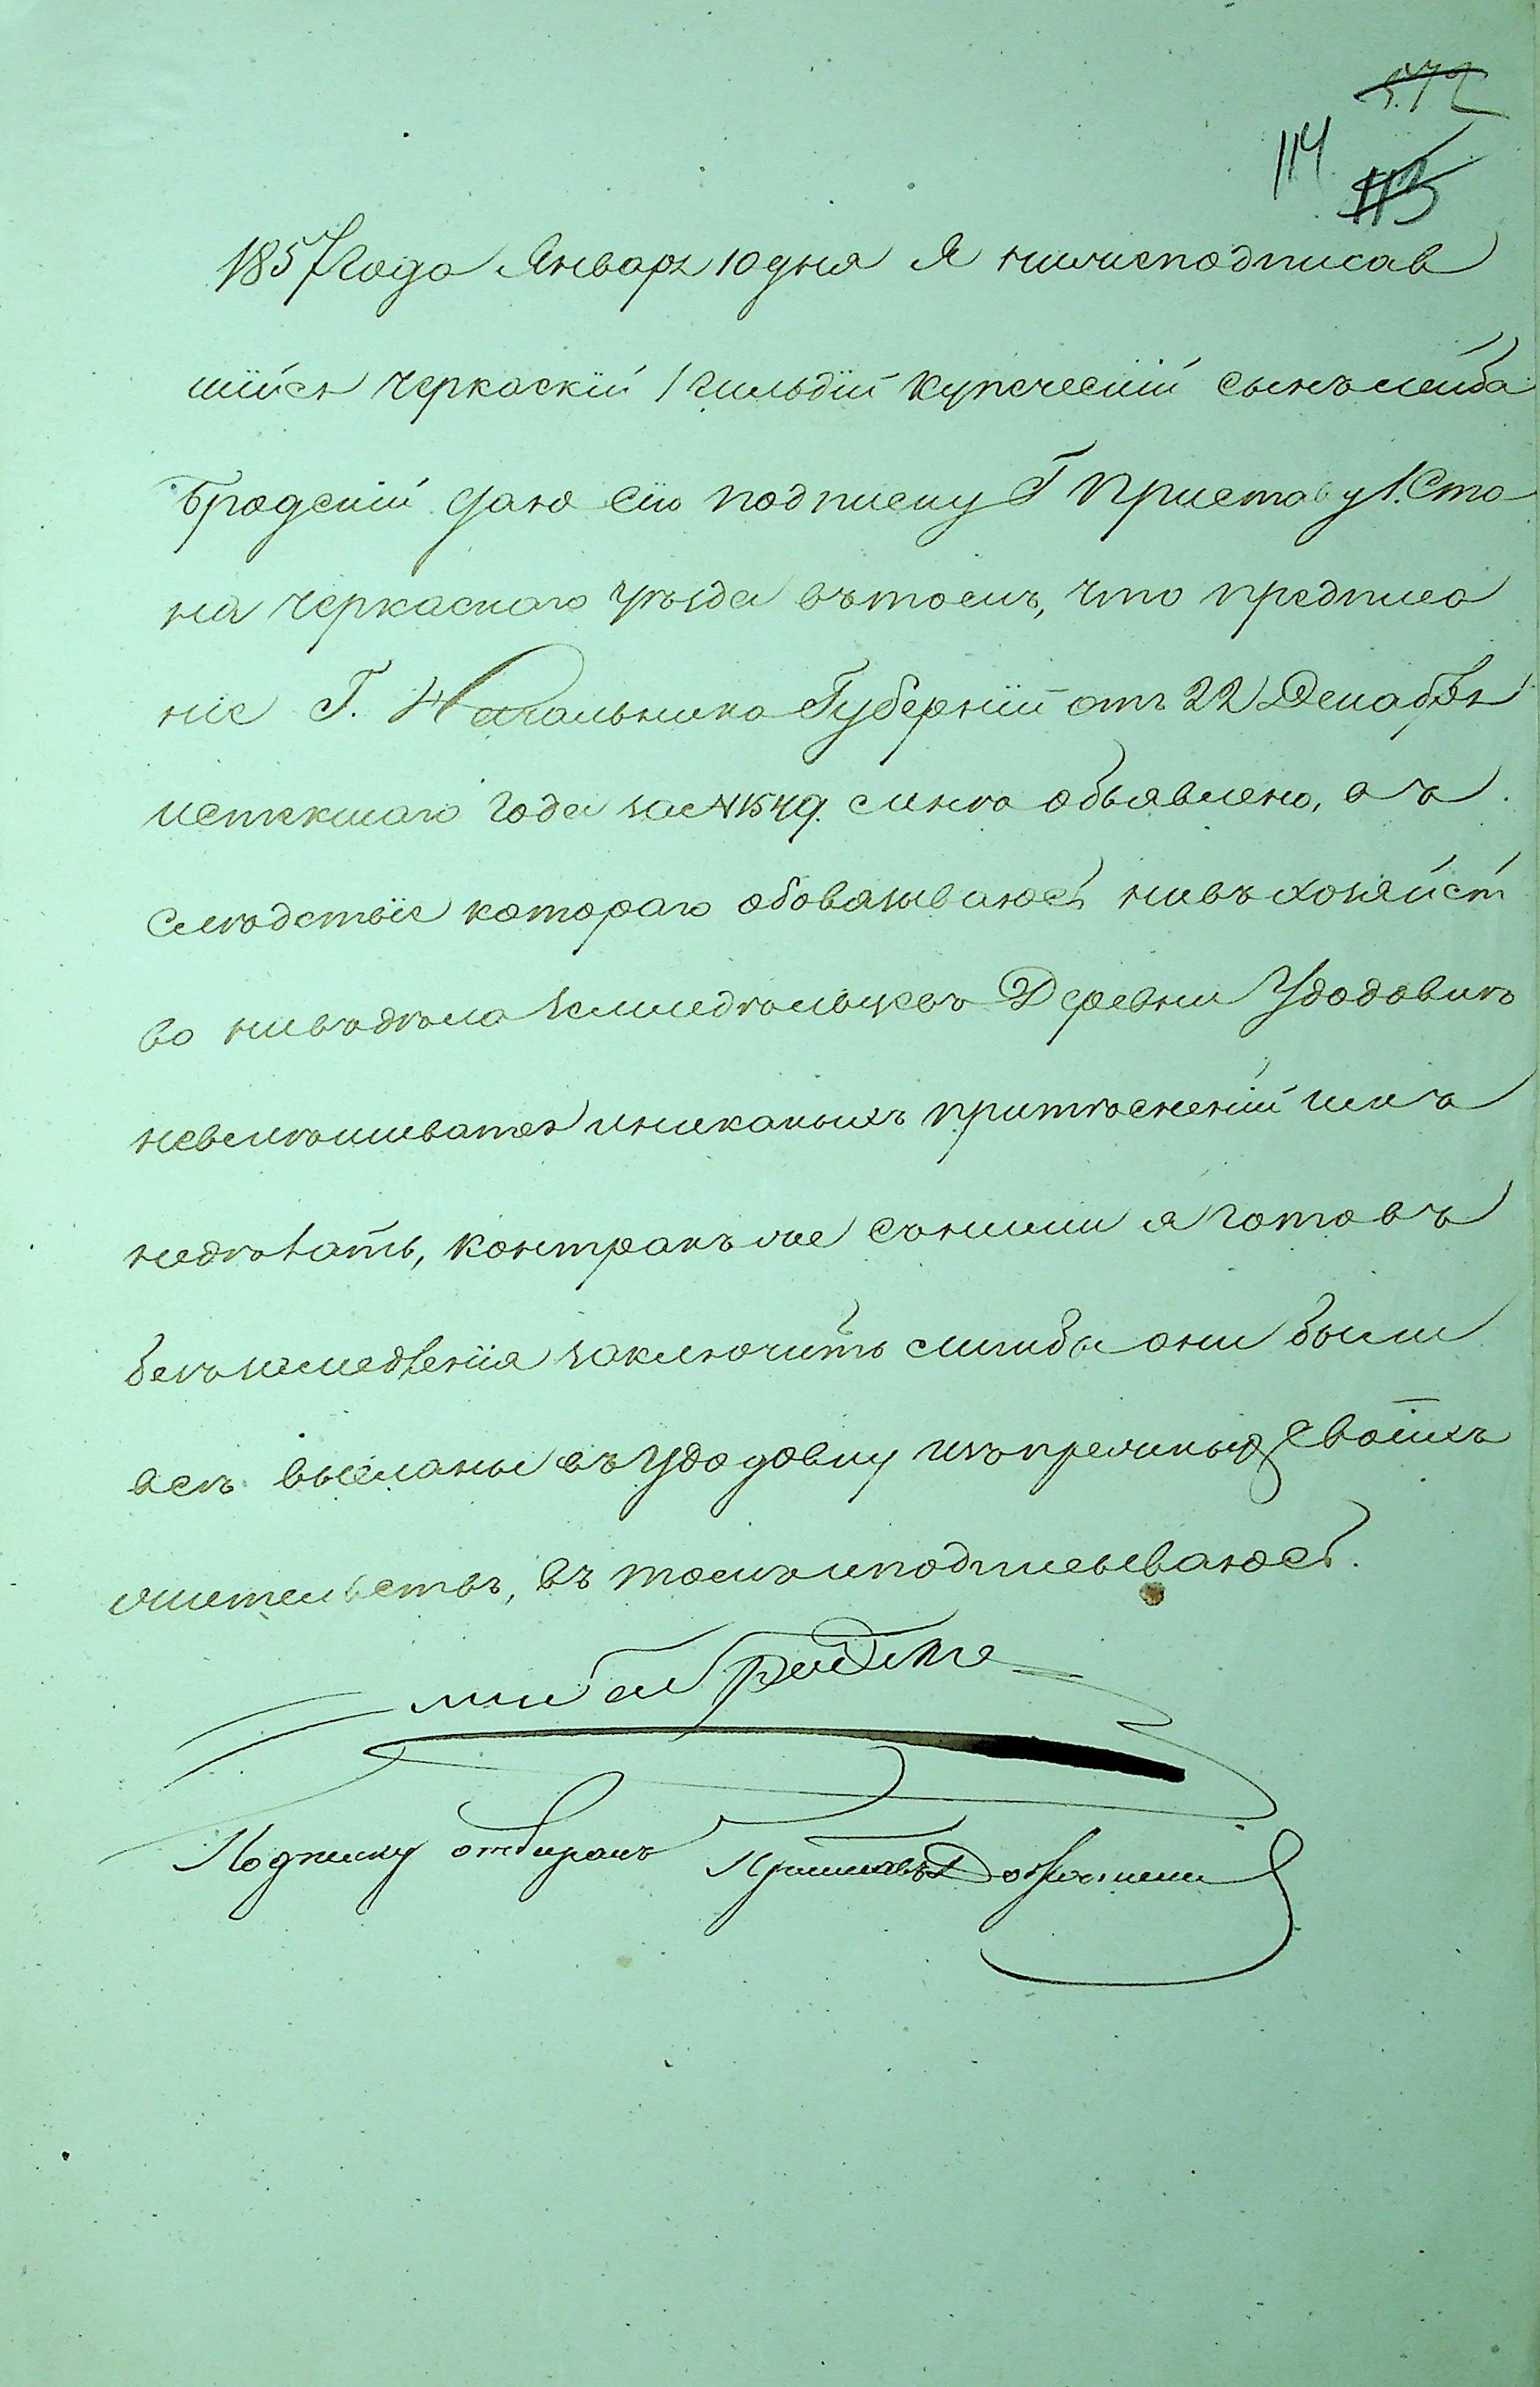 572
114
113
1857 года Января 10 дня Я нижеподписав
шійся черкаскій 1 гильдіи купеческій сынъ Лейба
Бродскій даю сію подписку Г Приставу 1. Ста
на черкаскаго уѣзда въ томъ, что предписа
ніе Г. Начальника Губерніи отъ 22 Декабря
истекшаго года за № 1549. мнѣ объявлено, въ
слѣдствіе котораго обовязываюсь нивъ хозяйст
во нивъ дѣла земледѣльцевъ Деревни Удодовки
невмѣшиватся иникакихъ притѣсненій имъ
недѣлать, контрактъ же съ ними я готовъ
безъ замедленія заключить лишбы они были
всѣ высланы въ Удодовку изъ прежныхъ своихъ
жительствъ, въ томъ иподписываюсь.
Лейба Бродскій
Подписку отбиралъ Приставъ